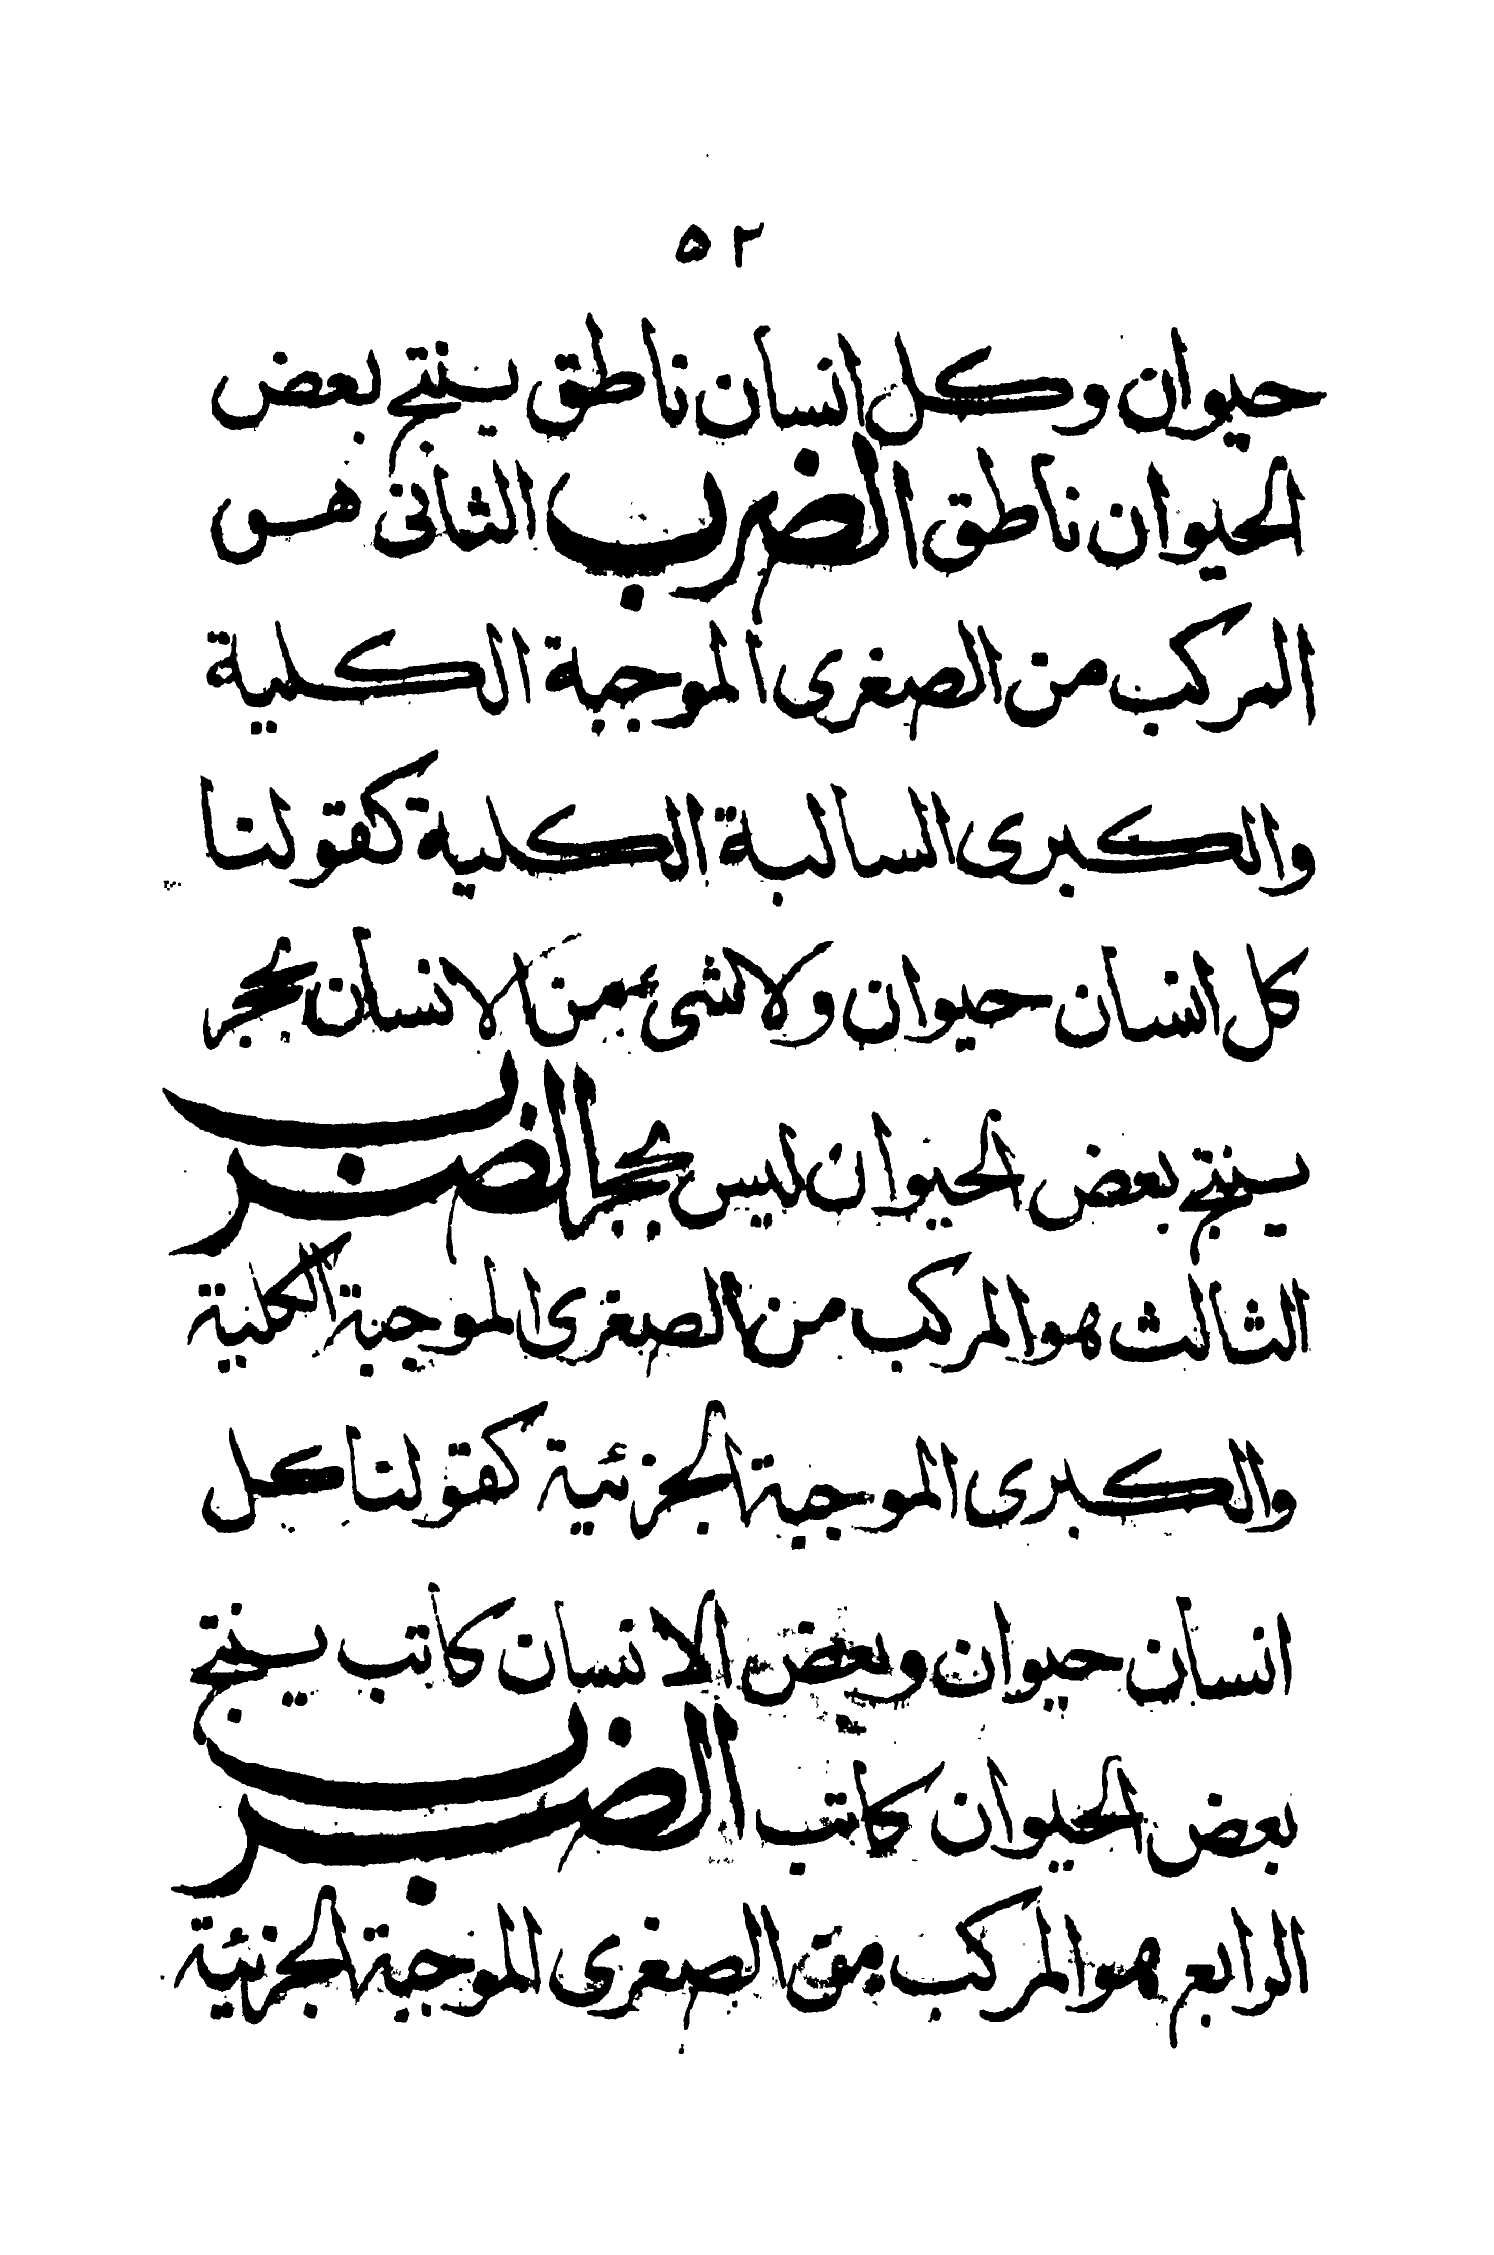 ٥٢
حيوان وكل انسان ناطق ينتج بعض
الحيوان ناطق الضرب الثانى هو
المركب من الصغرى الموجبة الكلية
والكبرى السالبة الكلية كقولنا
كل انسان حيوان ولاشئ من الانسان بحجر
ينتج بعض الحيوان ليس بحجر الضرب
الثالث هو المركب من الصغرى الموجبة الكلية
والكبرى الموجبة الجزئية كقولنا كل
انسان حيوان وبعض الانسان كاتب ينتج
بعض الحيوان كاتب الضرب
الرابع هو المركب من الصغرى الموجبة الجزئية